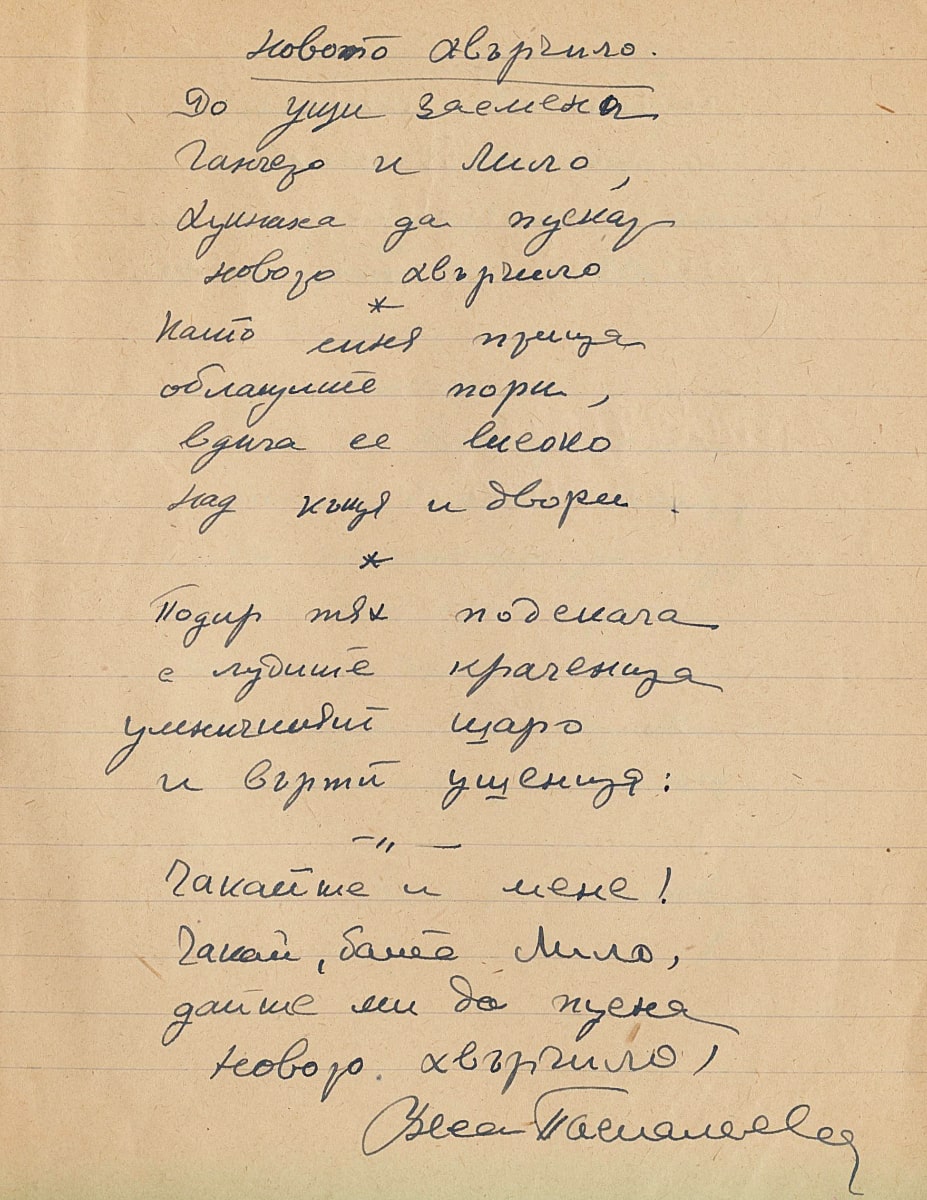 Новото хвърчило.
До уши засмени
Ганчето и Лило,
хукнаха да пускат
новото хвърчило
*
Като синя птица
облаците пори,
вдига се високо
над къщя и двори.
*
Подир тях подскача
с лудите краченца
умничкият Шаро
и върти ушенця:
—"—
Чакайте и мене!
Чакай, бате Лило,
дайте ми да пусна
новото хвърчило!
Веса Паспалеева